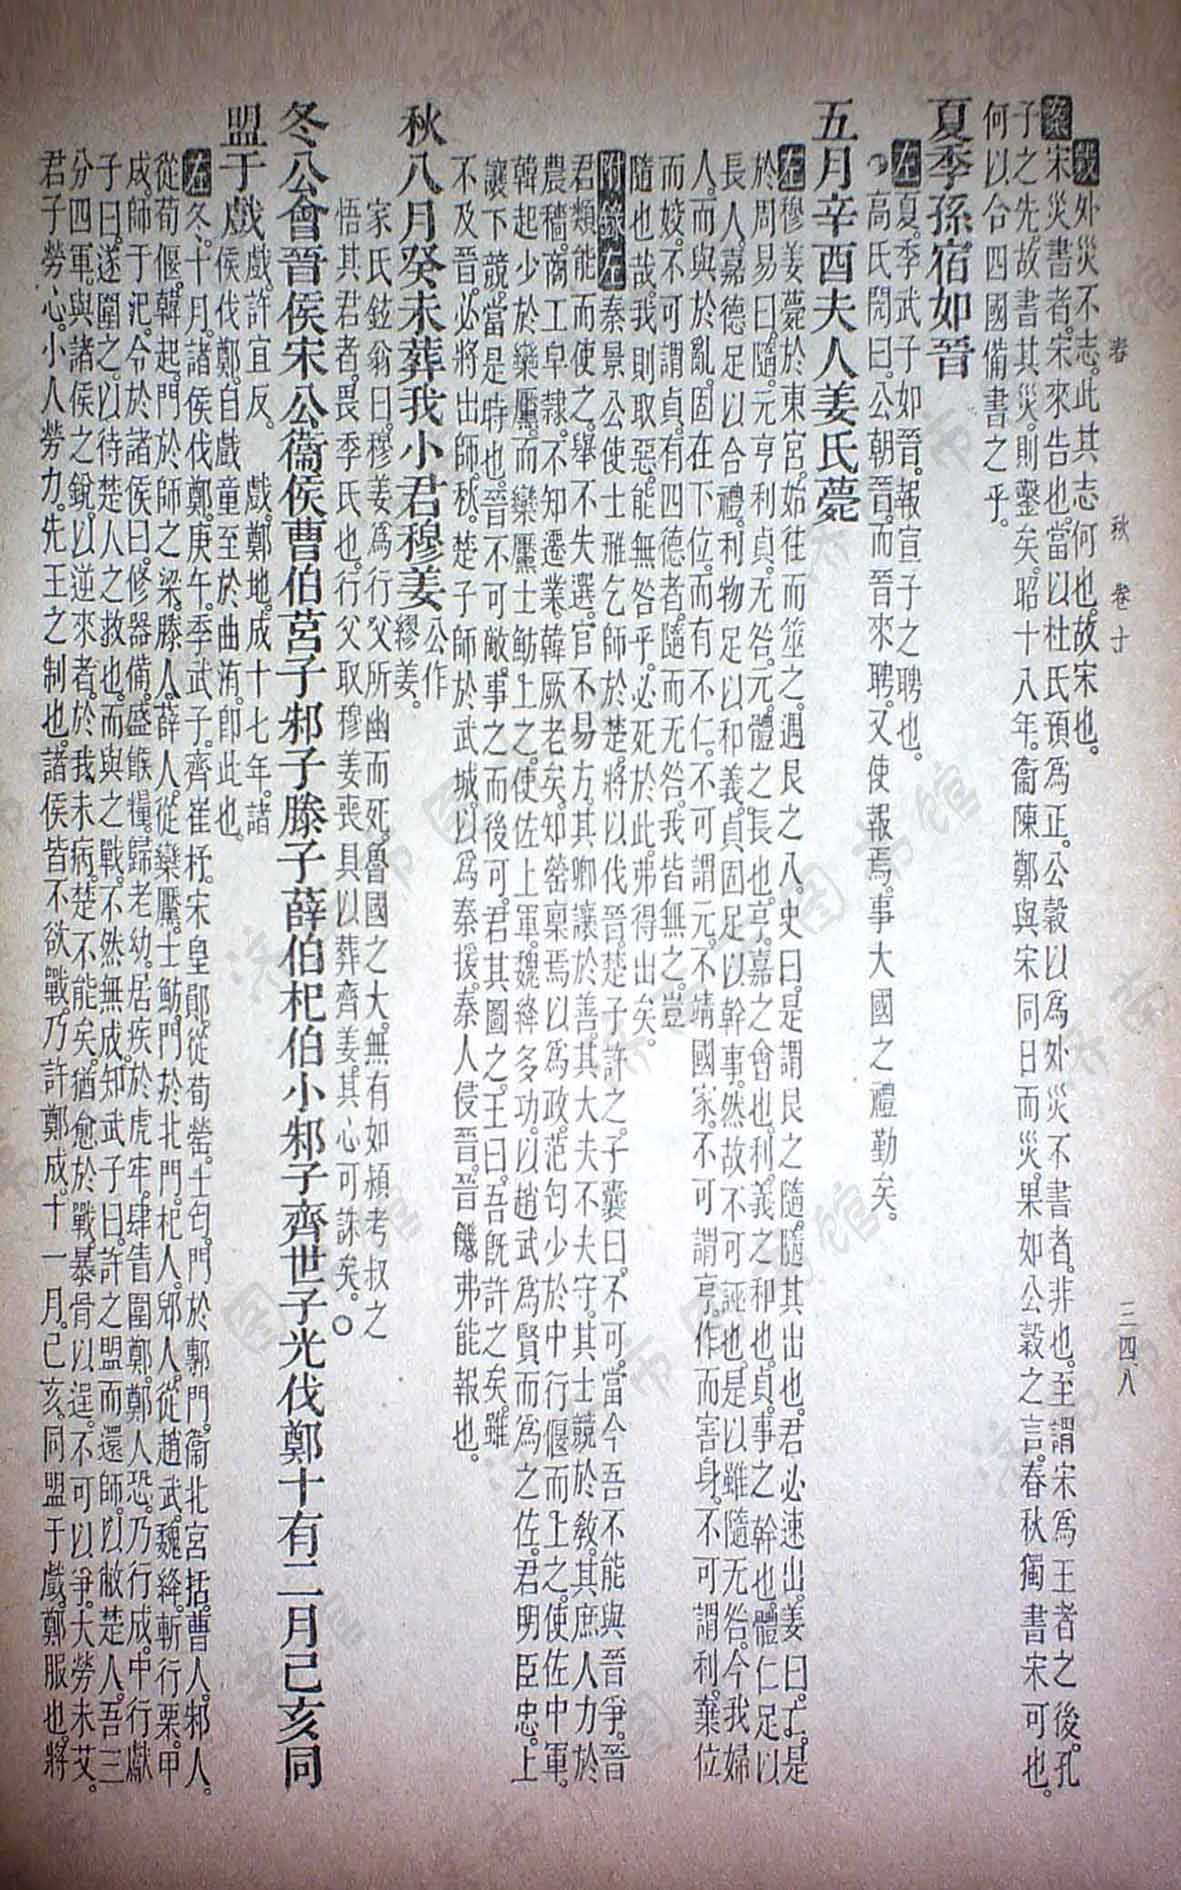 春　秋　卷十　三四八
穀外災不志此其志何也故宋也。
案宋災書者宋來告也當以杜氏預爲正公穀以爲外災不書者非也至謂宋爲王者之後孔
子之先故書其災則鑿矣昭十八年衞陳鄭與宋同日而災果如公穀之言春秋獨書宋可也。
何以合四國備書之乎。
夏季孫宿如晉
左夏季武子如晉報宣子之聘也。
高氏閌曰公朝晉而晉來聘又使報焉事大國之禮勤矣。
五月辛酉夫人姜氏薨
左穆姜薨於東宮始往而筮之遇艮之八史曰是謂艮之隨隨其出也君必速出姜曰亡是
於周易曰隨元亨利貞无咎元體之長也亨嘉之會也利義之和也貞事之幹也體仁足以
長人嘉德足以合禮利物足以和義貞固足以幹事然故不可誣也是以雖隨无咎今我婦
人而與於亂固在下位而有不仁不可謂元不靖國家不可謂亨作而害身不可謂利棄位
而姣不可謂貞有四德者隨而无咎我皆無之豈
隨也哉我則取惡能無咎乎必死於此弗得出矣。
附錄左秦景公使士雃乞師於楚將以伐晉楚子許之子囊曰不可當今吾不能與晉爭晉
君類能而使之舉不失選官不易方其卿讓於善其大夫不失守其士競於教其庶人力於
農穡商工皁隸不知遷業韓厥老矣知罃稟焉以爲政范匄少於中行偃而上之使佐中軍
韓起少於欒黶而欒黶士魴上之使佐上軍魏絳多功以趙武爲賢而爲之佐君明臣忠上
讓下競當是時也晉不可敵事之而後可君其圖之王曰吾既許之矣雖
不及晉必將出師秋楚子師於武城以爲秦援秦人侵晉晉饑弗能報也。
秋八月癸未葬我小君穆姜公作繆姜。
家氏鉉翁曰穆姜爲行父所幽而死魯國之大無有如潁考叔之
悟其君者畏季氏也行父取穆姜喪具以葬齊姜其心可誅矣。○
冬公會晉侯宋公衞侯曹伯莒子邾子滕子薛伯杞伯小邾子齊世子光伐鄭十有二月己亥同
盟于戲戲許宜反。　戲鄭地成十七年諸
侯伐鄭自戲童至於曲洧即此也。
左冬十月諸侯伐鄭庚午季武子齊崔杼宋皇鄖從荀罃士匄門於鄟門衞北宮括曹人邾人
從荀偃韓起門於師之梁滕人薛人從欒黶士魴門於北門杞人郳人從趙武魏絳斬行栗甲
戌師于汜令於諸侯曰修器備盛餱糧歸老幼居疾於虎牢肆眚圍鄭鄭人恐乃行成中行獻
子曰遂圍之以待楚人之救也而與之戰不然無成知武子曰許之盟而還師以敝楚人吾三
分四軍與諸侯之銳以逆來者於我未病楚不能矣猶愈於戰暴骨以逞不可以爭大勞未艾。
君子勞心小人勞力先王之制也諸侯皆不欲戰乃許鄭成十一月己亥同盟于戲鄭服也將